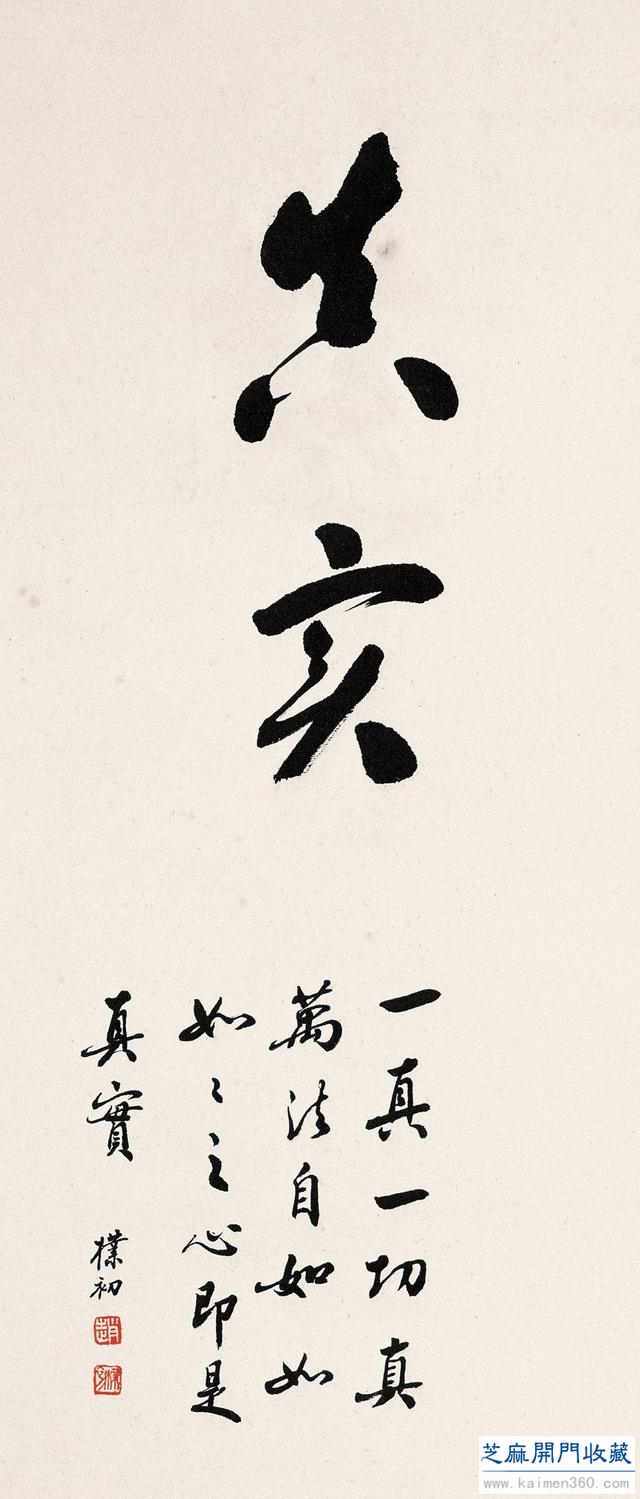 真
实
一真一切真
萬法自如如
如〻之心即是
真實
樸初
趙
樸初
芝麻開門收藏
www.kaimen360.com